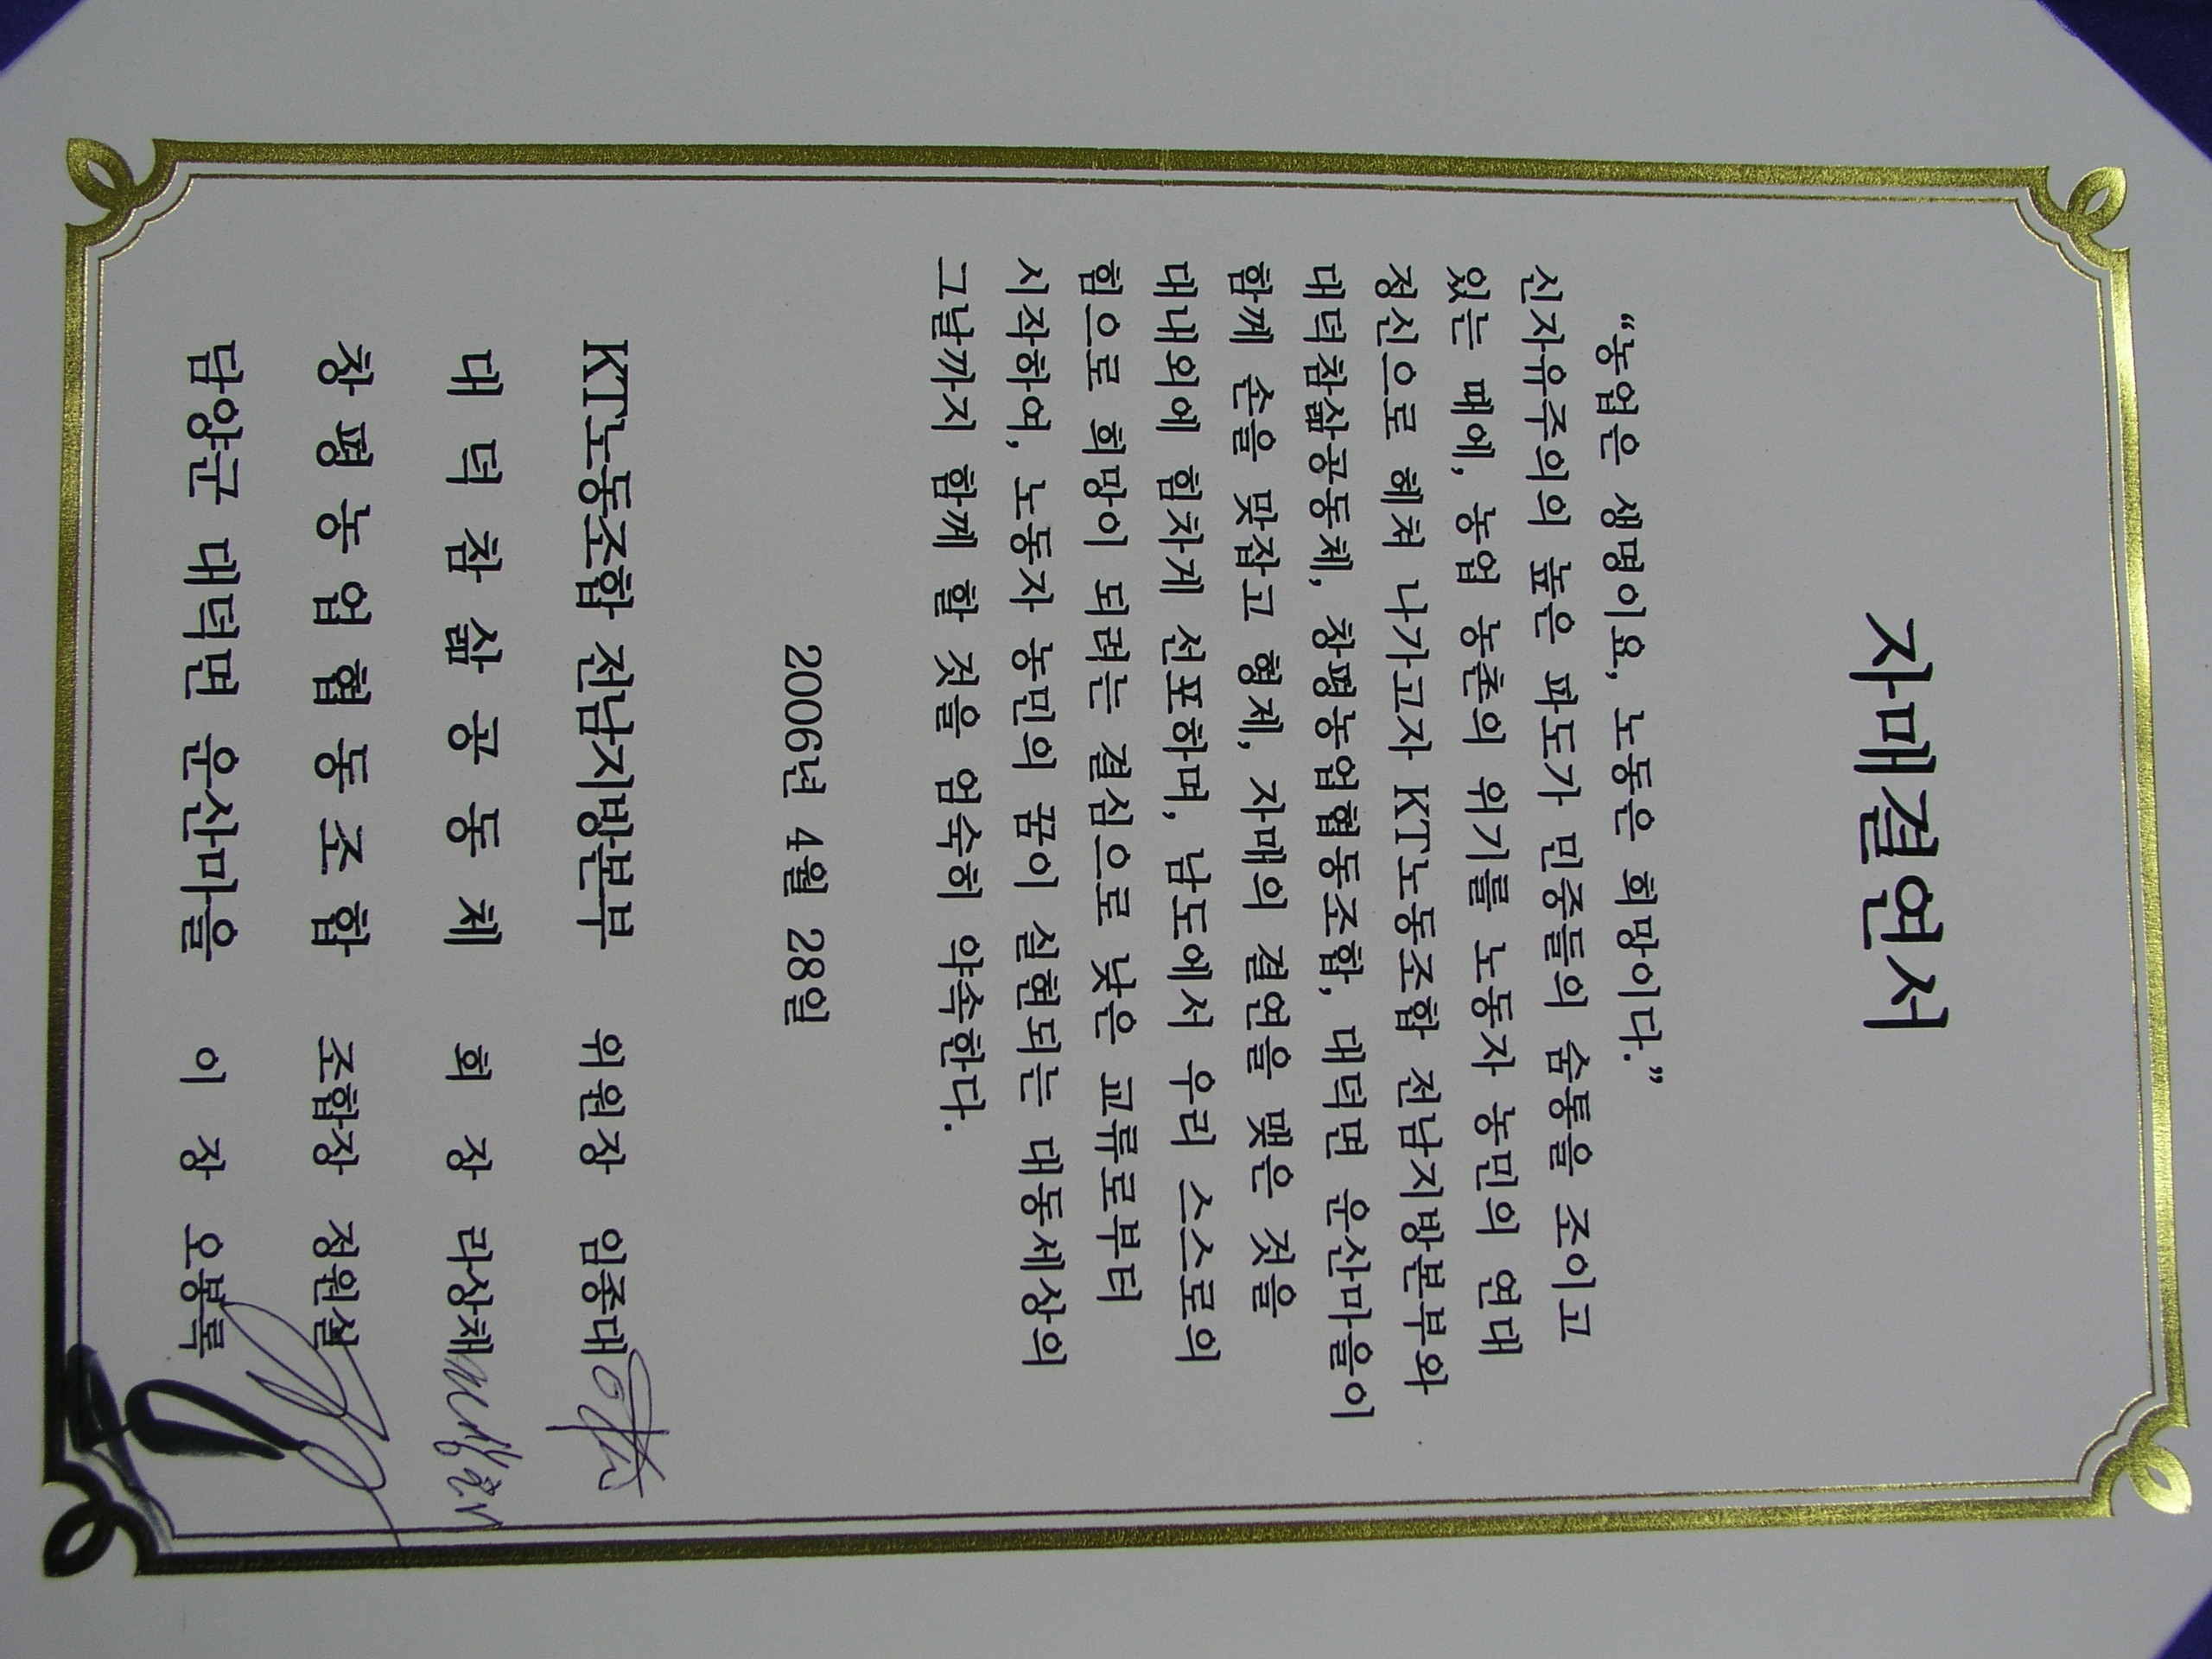 자매결연서
“농업은 생명이요, 노동은 희망이다.”
신자유주의의 높은 파도가 민중들의 숨통을 조이고
있는 때에, 농업 농촌의 위기를 노동자 농민의 연대
정신으로 헤쳐 나가고자 KT노동조합 전남지방본부와
대덕참삶공동체, 창평농업협동조합, 대덕면 운산마을이
함께 손을 맞잡고 형제, 자매의 결연을 맺은 것을
대내외에 힘차게 선포하며, 남도에서 우리 스스로의
힘으로 희망이 되려는 결심으로 낮은 교류로부터
시작하여, 노동자 농민의 꿈이 실현되는 대동세상의
그날까지 함께 할 것을 엄숙히 약속한다.
2006년 4월 28일
KT노동조합 전남지방본부 위원장 임종대
대 덕 참 삶 공 동 체 회 장 라상채
창 평 농 업 협 동 조 합 조합장 정원실
담양군 대덕면 운산마을 이 장 오봉록